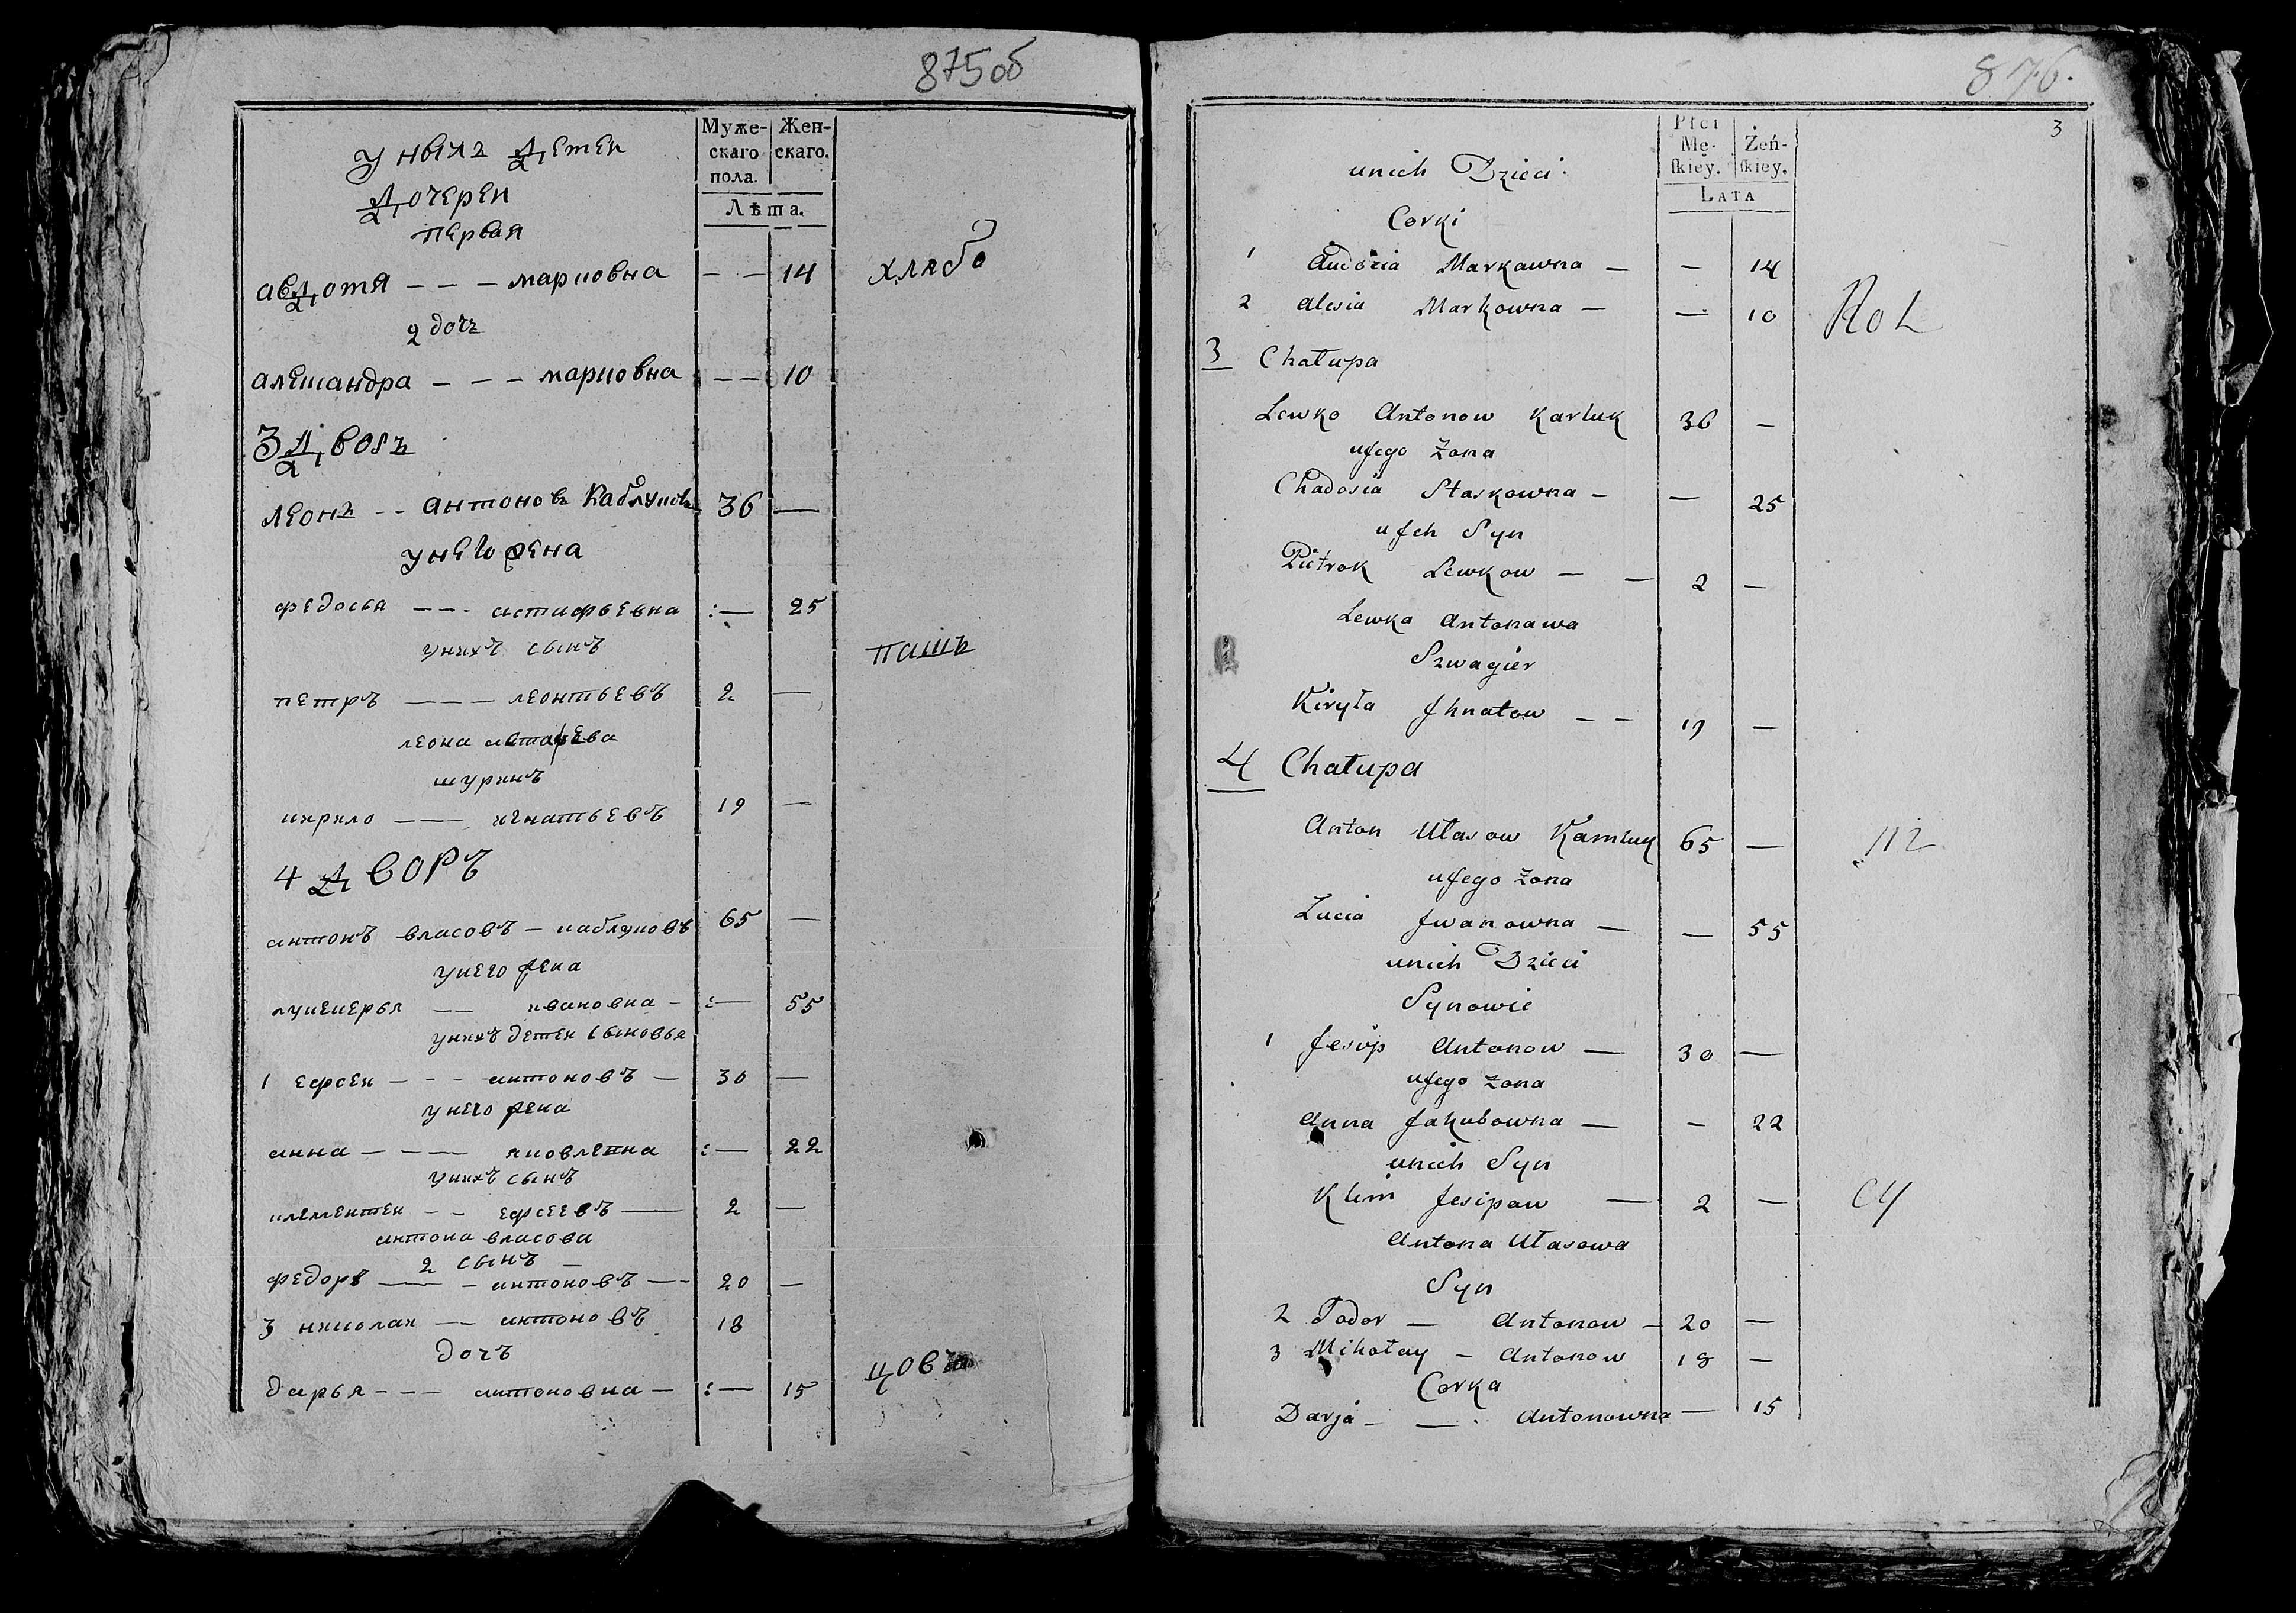 875об
Муже-
скаго
пола.
Жен-
скаго.
Лѣта.
у ныхъ детеи
дочереи
первая
авдотя - - - марковна - - 14
хлябо
2 дочъ
александра - - - марковна - - 10
3 дворъ
леонъ - - антоновъ Каблуковъ 36 —
у него жена
федосья - - - астафьевна :— 25
унихъ сынъ
пашъ
петръ - - - леонтьевъ 2 —
леона
шуринъ
кирило — — игнатьевъ 19 —
4 дворъ
антонъ власовъ - каблуковъ 65 —
унего жена
лукерья — ивановна - :— 55
унихъ детеи сыновья
1 ефсеи - - - антоновъ — 30 —
унего жена
анна - - - — яковлевна :— 22
унихъ сынъ
клементеи - - ефсеевъ — 2 —
антона власова
2 сынъ —
федоръ — - антоновъ — 20 —
3 николаи — антоновъ 18
дочъ
дарья - - - антоновна — :— 15
цовъ
876.
3
Płci
Mę-
ſkiey.
Żeń-
ſkiey.
LATA
unich Dzieci
Corki
1 Audocia Markawna — — 14
2 Alesia Markowna — — 10
3 Chałupa
Lewko Antonow Karluk 36 —
ujego Żona
Chadosia Staskowna — — 25
uich Syn
Piétrok Lewkow — — 2 —
Lewka Antonawa
Szwagier
Kiryła Jhnatow — — 19 —
4 Chałupa
Anton Ułasow Kamluk 65 —
112
ujego Żona
Lucia Jwanowna — — 55
unich Dzieci
Synowie
1 Jesip Antonow — 30 —
ujego Żona
Anna Jakubowna — — 22
unich Syn
Klim Jesipaw — 2 —
Antona Ułasowa
Syn
2 Todor — Antonow — 20 —
3 Mikołay — Antonow 18 —
Corka
Darja — — Antonowna — 15